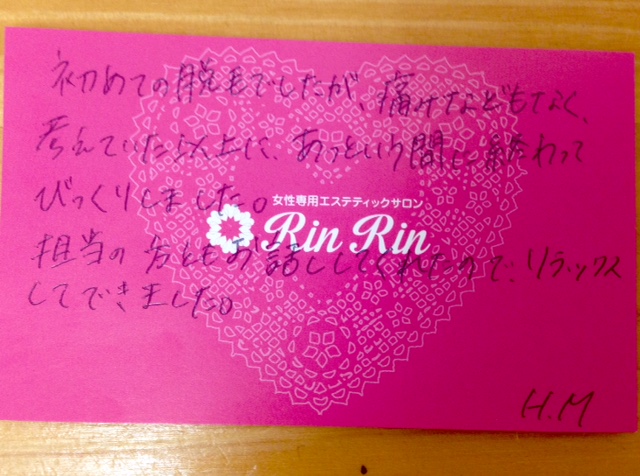 初めての脱毛でしたが、痛みなどもなく、
考えていた以上に、あっという間に終わって
びっくりしました。
女性専用エステティックサロン
Rin Rin
担当の方ともお話ししてくれたので、リラックス
してできました。
H.M